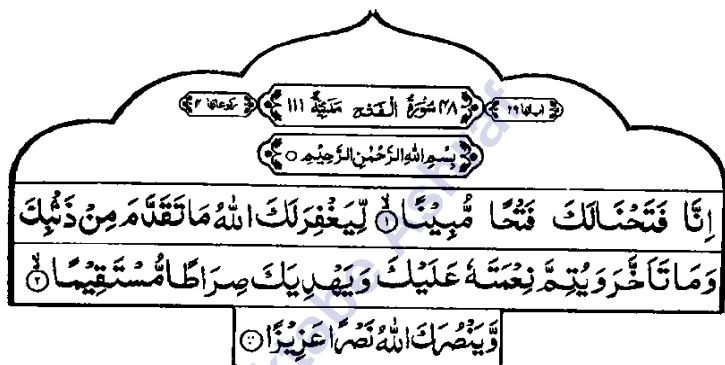 اٰیاتها ٢٩ ٤٨ سُوْرَةُ الْفَتْحِ مَدَنِیَّةٌ ١١١ رکوعاتها ٤
بِسْمِ اللهِ الرَّحْمٰنِ الرَّحِیْمِ ○
اِنَّا فَتَحْنَا لَكَ فَتْحًا مُّبِیْنًا ۙ﴿١﴾ لِّیَغْفِرَ لَكَ اللهُ مَا تَقَدَّمَ مِنْ ذَنْۢبِكَ
وَمَا تَاَخَّرَ وَیُتِمَّ نِعْمَتَهٗ عَلَیْكَ وَیَهْدِیَكَ صِرَاطًا مُّسْتَقِیْمًا ۙ﴿٢﴾
وَّیَنْصُرَكَ اللهُ نَصْرًا عَزِیْزًا ﴿٣﴾